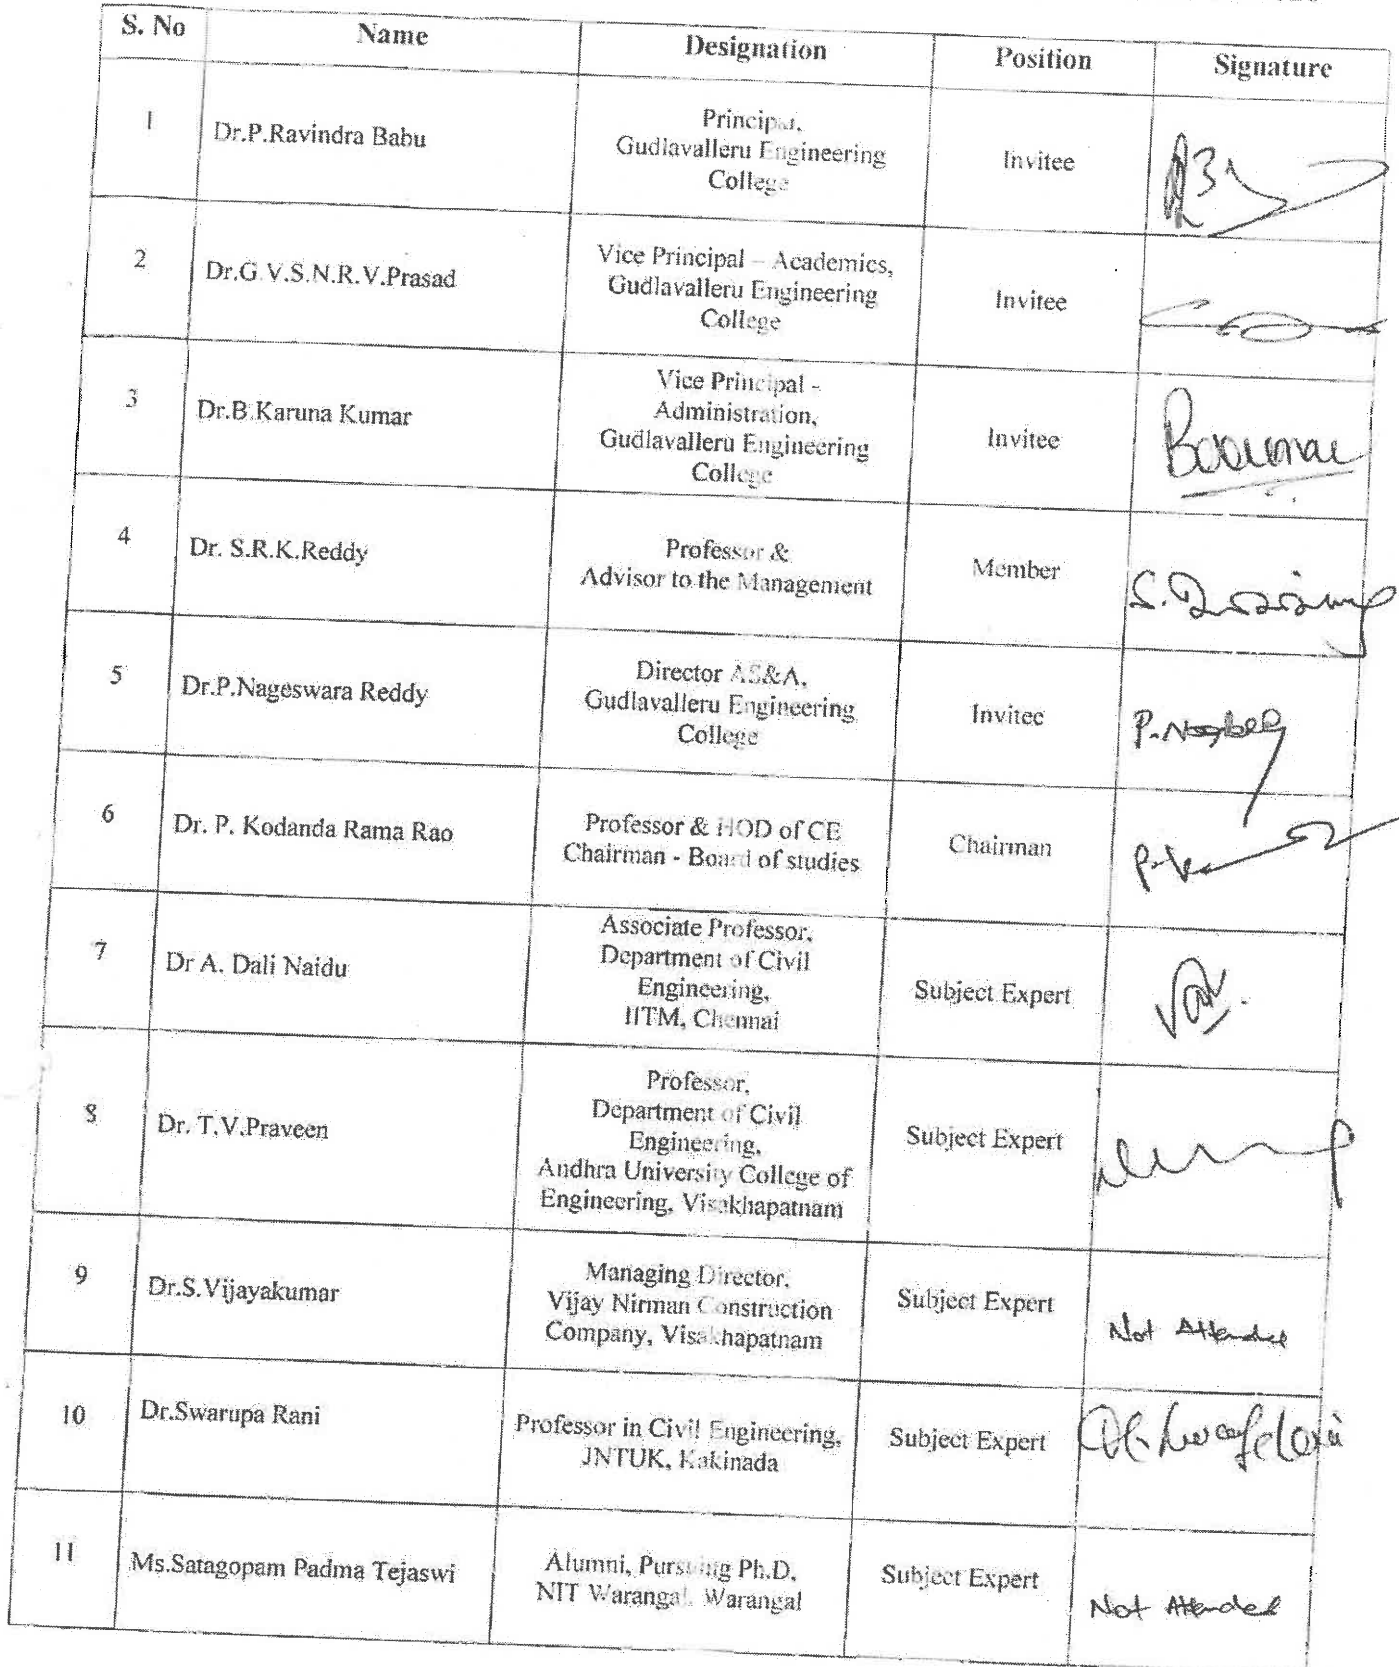 S. No Name Designation Position Signature
1 Dr.P.Ravindra Babu Principal,
Gudlavalleru Engineering
College Invitee
2 Dr.G.V.S.N.R.V.Prasad Vice Principal – Academics,
Gudlavalleru Engineering
College Invitee
3 Dr.B.Karuna Kumar Vice Principal -
Administration,
Gudlavalleru Engineering
College Invitee
4 Dr. S.R.K.Reddy Professor &
Advisor to the Management Member
5 Dr.P.Nageswara Reddy Director AS&A,
Gudlavalleru Engineering
College Invitee
6 Dr. P. Kodanda Rama Rao Professor & HOD of CE
Chairman - Board of studies Chairman
7 Dr A. Dali Naidu Associate Professor,
Department of Civil
Engineering,
IITM, Chennai Subject Expert
8 Dr. T.V.Praveen Professor,
Department of Civil
Engineering,
Andhra University College of
Engineering, Visakhapatnam Subject Expert
9 Dr.S.Vijayakumar Managing Director,
Vijay Nirman Construction
Company, Visakhapatnam Subject Expert Not Attended
10 Dr.Swarupa Rani Professor in Civil Engineering,
JNTUK, Kakinada Subject Expert
11 Ms.Satagopam Padma Tejaswi Alumni, Pursuing Ph.D,
NIT Warangal, Warangal Subject Expert Not Attended